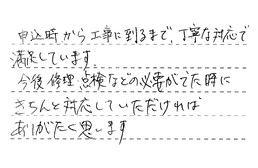 申込時から工事に到るまで、丁寧な対応で
満足しています
今後修理、点検などの必要がでた時に
きちんと対応していただければ
ありがたく思います